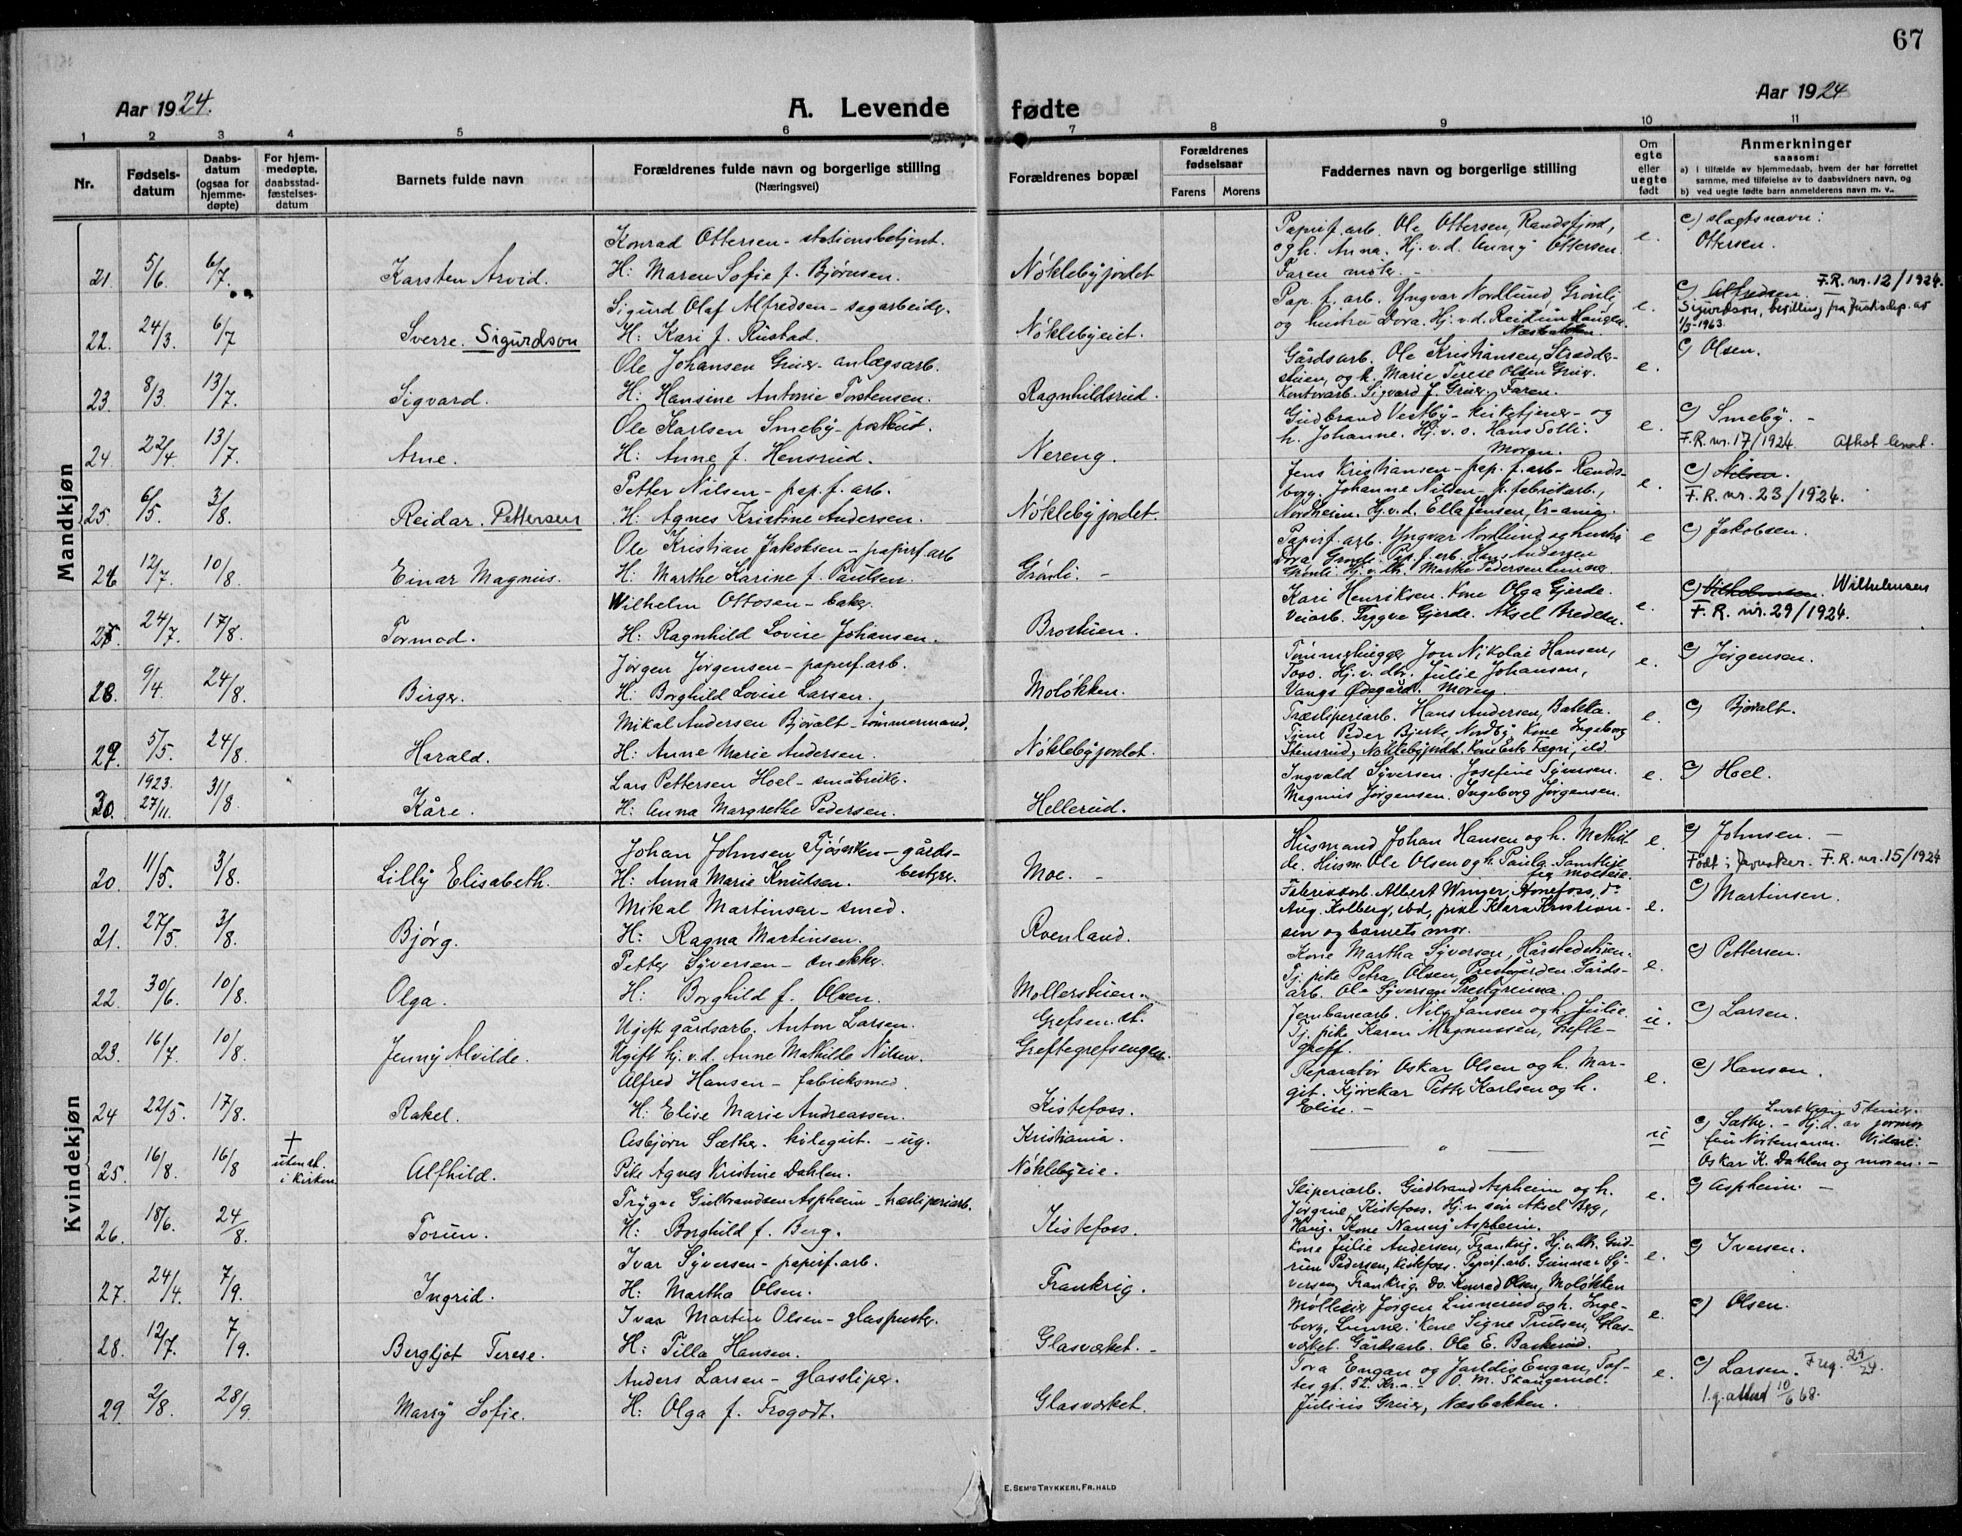 67
Aar 1924.
A. Levende fødte
Aar 1924
1 2 3 4 5 6 7 8 9 10 11
Nr. Fødselsdatum Daabsdatum (ogsaa for hjemmedøpte) For hjemmedøpte, daabsstadfæstelsesdatum Barnets fulde navn Forældrenes fulde navn og borgerlige stilling (Næringsvei) Forældrenes bopæl Forældrenes fødselsaar Farens Morens Faddernes navn og borgerlige stilling Om egte eller uegte født Anmerkninger saasom:
a) i tilfælde av hjemmedaab, hvem der har forrettet samme, med tilføielse av to daabsvidners navn, og
b) ved uegte fødte barn anmelderens navn m. v..
Mandkjøn
Konrad Ottersen - stationsbetjent. Papirf. arb. Ole Ottersen, Randsfjord, e. c) slegtsnavn:
og h. Anna. Hj. v. d. Anny Ottersen. Ottersen.
21 5/6 6/7 Karsten Arvid. H: Maren Sofie f. Bjørnsen. Nøklebyjordet Faren møter. -
Sigurd Olaf Alfredsen - sagarbeider. Pap. f. arb. Yngvar Nordlund, Grønli, e. c) Alfredsen F.R. nr. 12/1924.
og hustru Dora. Hj. v. d. Reidun Haugen Sigurdson, bevilling fra Justisdep. av
22. 24/3 6/7 Sverre. Sigurdson H: Kari f. Rustad. Nøklebyeiet. Næsbakken. 1/3-1963.
Ole Johansen Gruer - anlægsarb. Gårdsarb. Ole Kristiansen, e. c) Olsen.
og h. Marie Terese Olsen Gruer.
23 8/3 13/7 Sigvard. H: Hansine Antonie Torstensen. Ragnhildsrud. Kontorarb. Sigvard J. Gruer. Faren.
Ole Karlsen Smeby - postbud. Gudbrand Vestby - kirketjener - og e. c) Smeby. -
24. 22/4 13/7 Arne. H: Anne f. Hensrud. Nereng. h. Johanne. Hj. v. s. Hans Solli. Moren. F.R. nr. 17/1924.
Petter Nilsen - pap. f. arb. Jens Kristiansen - pap. f. arb - Rands- e. c) Nilsen
borg. Johanne Nilsen - p. fabrikarb., F.R. nr. 23/1924.
25. 6/5. 3/8. Reidar. Pettersen H: Agnes Kristine Andersen. Nøklebyjordet. Nordheim. H. v. d. Ella Jensen,
Ole Kristian Jakobsen - papirf. arb Papirf. arb. Yngvar Nordlund og hustru e c) Jakobsen.
Dora Grønli. Pap. f. arb. Hans Andersen
26 12/7. 10/8. Einar Magnus. H: Marthe Karine f. Paulsen. Grønli. - Grønli. Hj. v. dtr. Marthe Pedersen Lunner
Wilhelm Ottosen - baker Kari Henriksen. Kone Olga Gjerde. e. c) Vilhelmsen. Wilhelmsen
27 24/7. 17/8. Tormod. H: Ragnhild Lovise Johansen. Brostuen. Veiarb. Trygve Gjerde. Aksel Bredesen. F.R. nr. 29/1924.
Jørgen Jørgensen - papirf. arb. Tømmerhugger Jon Nikolai Hansen, e. c) Jørgensen.
Toso. Hj. v. dtr. Julie Johansen,
28. 9/4. 24/8. Birger. H: Borghild Lovise Larsen. Moløkken. Vangs Ødegård. Moren.
Mikal Andersen Bjøralt - tømmermand. Træsliperiarb. Hans Andersen, Bakka. e. c) Bjøralt.
Tjener Peder Bjerke, Nordby. Kone Ingeborg
29. 5/5. 24/8. Harald. H: Anne Marie Andersen. Nøklebyjordet. Stensrud, Nøklebyjordet.
1923. Lars Pettersen Hoel - småbruker. Ingvald Syversen. Josefine Syversen. e. c) Hoel.
30. 27/11. 31/8. Kåre. H: Anna Margrethe Pedersen. Hellerud. Magnus Jørgensen. Ingeborg Jørgensen.
Kvindekjøn
Johan Johnsen - gårdsbestyrer. Husmand Johan Hansen og h. Mathilde. e. c) Johnsen. -
20. 11/5. 3/8. Lilly Elisabeth. H: Anna Marie Knudsen. Moe. - Husm. Ole Olsen og h. Paula. Samtlige fra moeeie. Født i Jevnaker. F.R. nr. 15/1924
Mikal Martinsen - smed. Fabrikarb. Albert Winger, Hønefoss, do e. c) Martinsen.
Aug. Kolberg, ibd, pike Klara Kristian-
21. 27/5. 3/8. Bjørg. H: Ragna Martinsen. Roenland. sen og barnets mor.
Petter Syversen - snekker. Kone Martha Syversen, e. c) Pettersen.
Tj. pike Petra Olsen, Prestgården. Gårds-
22. 30/6. 10/8. Olga. H: Borghild f. Olsen. Mollerstuen. arb. Ole Syversen
Ugift gårdsarb. Anton Larsen. Grefsen st. Jernbanearb. Nils Jansen og h. Julie. u. c) Larsen.
23. 16/7. 10/8. Jenny Alvilde. Ugift hj. v. d. Anne Mathilde Nilsen. Greftegrefsengen. Tj. pike Karen Magnussen,
Alfred Hansen - fabriksmed. Reparatør Oskar Olsen og h. Mar- e. c) Hansen.
24 22/5. 17/8. Rakel. H: Elise Marie Andreassen. Kistefoss. git. Kjørekar Petter Karlsen og h. Elise. -
Asbjørn Sæther. - ug. Kristiania. u c) Sæther. - Hj. d. av jormor
25. 16/8. 16/8 † i kirken Alfhild. Pike Agnes Kristine Dahlen. Nøklebyeie. Oskar K. Dahlen og moren. -
Trygve Gulbrandsen Aspheim - træsliperiarb. Sliperiarb. Gudbrand Aspheim og h. e. c) Aspheim. -
Jørgine Kistefoss. Hj. v. søn Aksel Berg,
26. 18/6. 24/8. Torun. H: Borghild f. Berg. Kistefoss. Haug. Kone Nanny Aspheim.
Ivar Syversen - papirf. arb. Kone Julie Andersen, Frankrig. Hj. v. dtr. Gud- e. c) Iversen.
run Pedersen, Kistefoss. Papirf. arb. Gunnar Sy-
27. 24/4. 7/9. Ingrid. H: Martha Olsen. Frankrig. versen, Frankrig. Do. Konrad Olsen, Moløkken
Ivar Martin Olsen - glaspuster. Mølleier Jørgen Linnerud og h. Inge- e. c) Olsen.
borg, Lunner. Kone Signe Trulsen, Glas-
28. 12/7. 7/9. Bergljot Terese. H: Tilla Hansen. Glasverket. - verket. Gårdsarb. Ole E. Bakkerud.
Anders Larsen - glassliper. Tora Engan og Jarldis Engan, Tof- e. c) Larsen. F. reg. 29/24.
tes gt. 52. Kr.a. - O. M. Skaugerud. 1. g. attest 10/6 68.
29 2/8. 28/9. Marry Sofie. H: Olga f. Frogodt. Glasverket. Julius Gruer, Næsbakken.
E. SEM'S TRYKKERI, FR.HALD